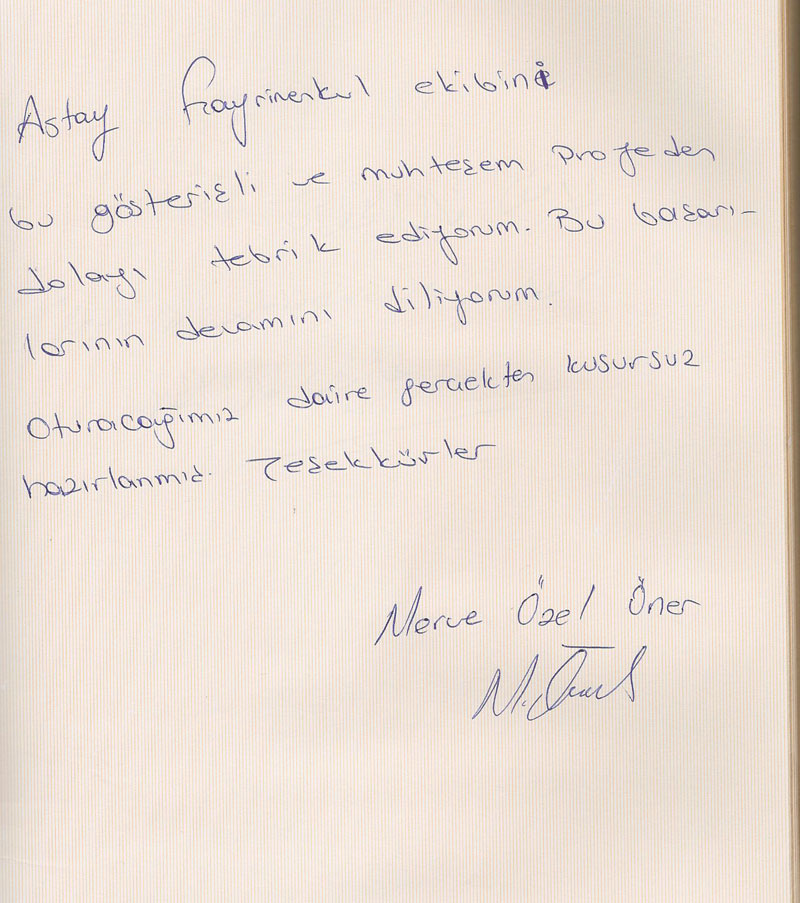 Astay Gayrimenkul ekibini
bu gösterişli ve muhteşem projeden
dolayı tebrik ediyorum. Bu başarı-
larının devamını diliyorum.
Oturacağımız daire gerçekten kusursuz
hazırlanmış. Teşekkürler
Merve Özel Öner